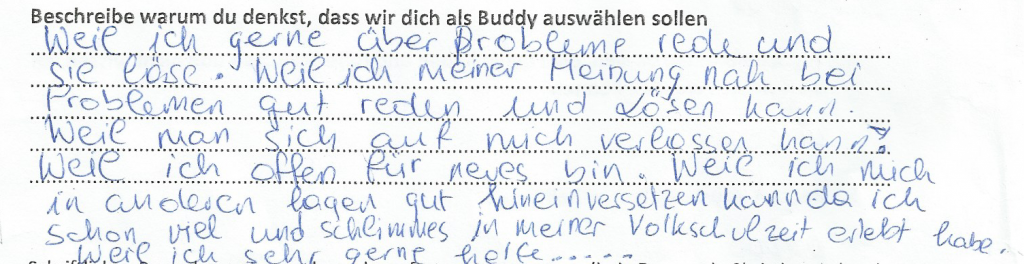 Beschreibe warum du denkst, dass wir dich als Buddy auswählen sollen
Weil ich gerne über Probleme rede und
sie löse. Weil ich meiner Meinung nah bei
Problemen gut reden und Lösen kann.
Weil man sich auf mich verlassen kann.
Weil ich offen für neues bin. Weil ich mich
in anderen lagen gut hineinversetzen kann da ich
schon viel und schlimmes in meiner Volkschulzeit erlebt habe.
Weil ich sehr gerne helfe......